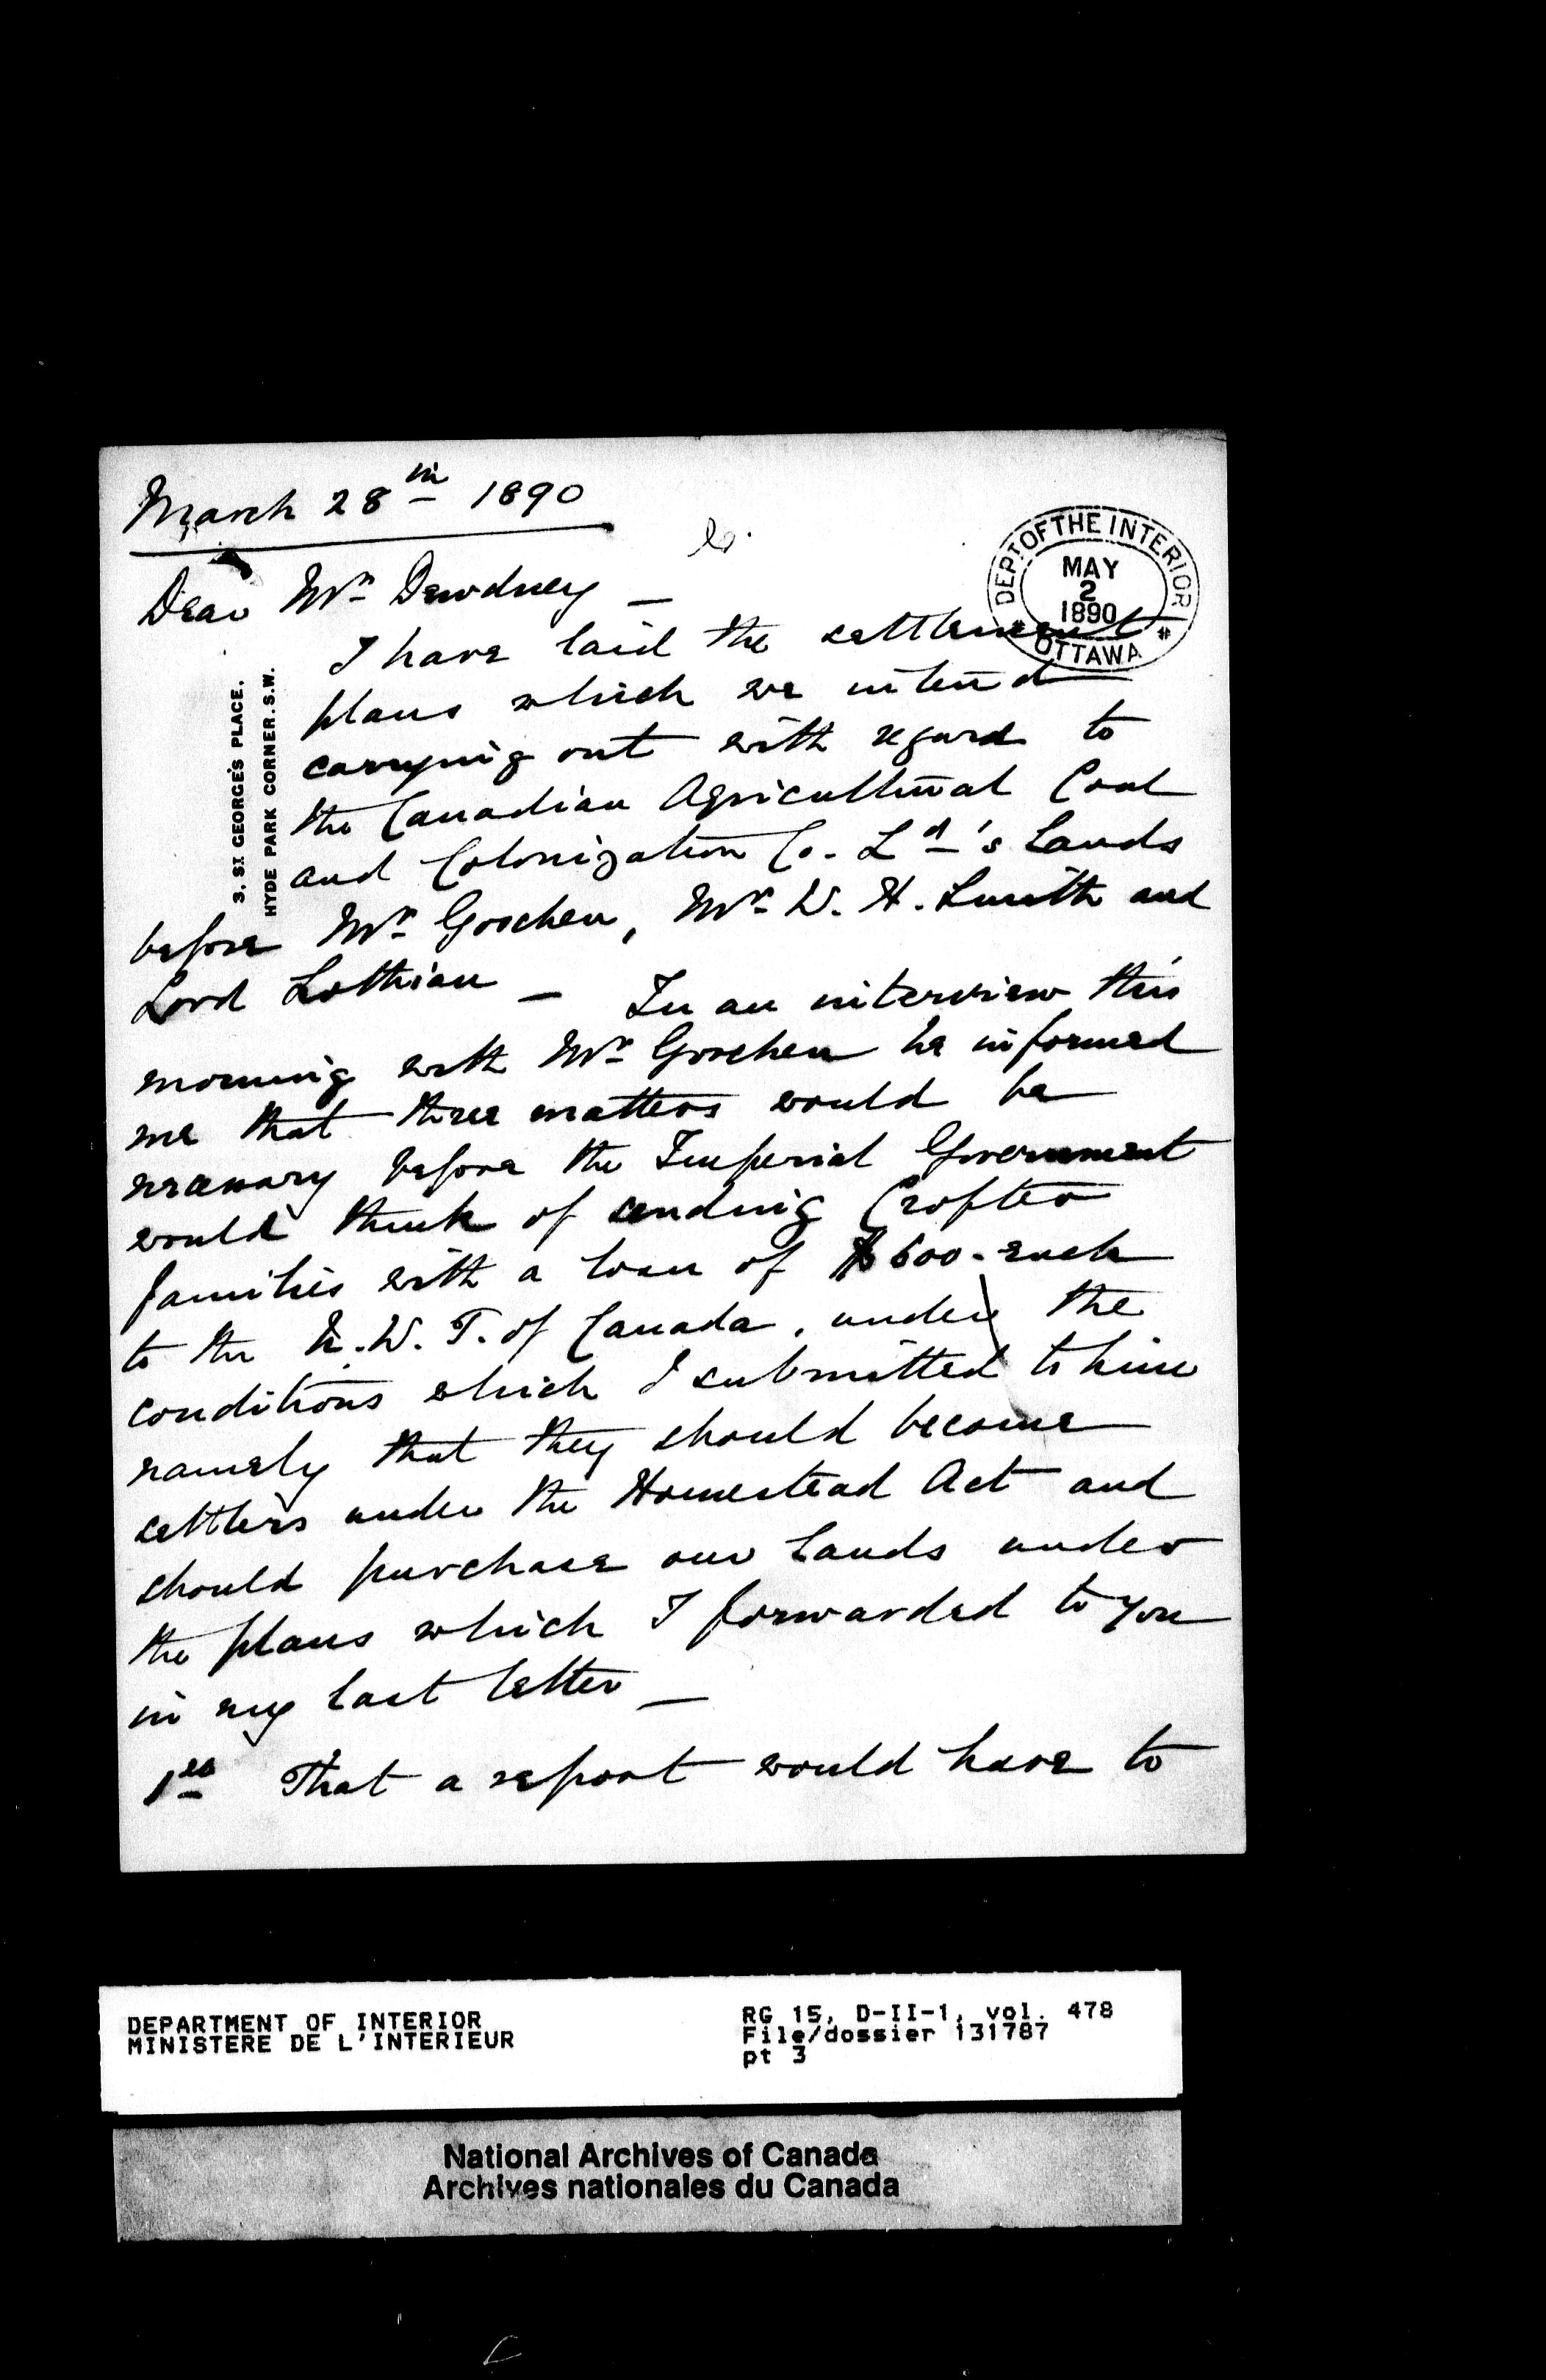 March 28th 1890
DEPT. OF THE INTERIOR
MAY
2
1890
OTTAWA
Dear Mr Dewdney —
3, ST GEORGE'S PLACE.
HYDE PARK CORNER. S.W.
I have laid the settlement
plans which we intend
carrying out with regard to
the Canadian Agricultural Coal
and Colonization Co. Ld's Lands
before Mr Goschen, Mr W. H. Smith and
Lord Lothian — In an interview this
morning with Mr Goschen he informed
me that three matters would be
necessary before the Imperial Government
would think of sending Crofter
families with a loan of $600. each
to the N. W. T. of Canada, under the
conditions which I submitted to him
namely that they should become
settlers under the Homestead Act and
should purchase our Lands under
the plans which I forwarded to you
in my last letter —
1st That a report would have to
DEPARTMENT OF INTERIOR
MINISTERE DE L'INTERIEUR
RG 15, D-II-1, vol. 478
File/dossier 131787
pt 3
National Archives of Canada
Archives nationales du Canada